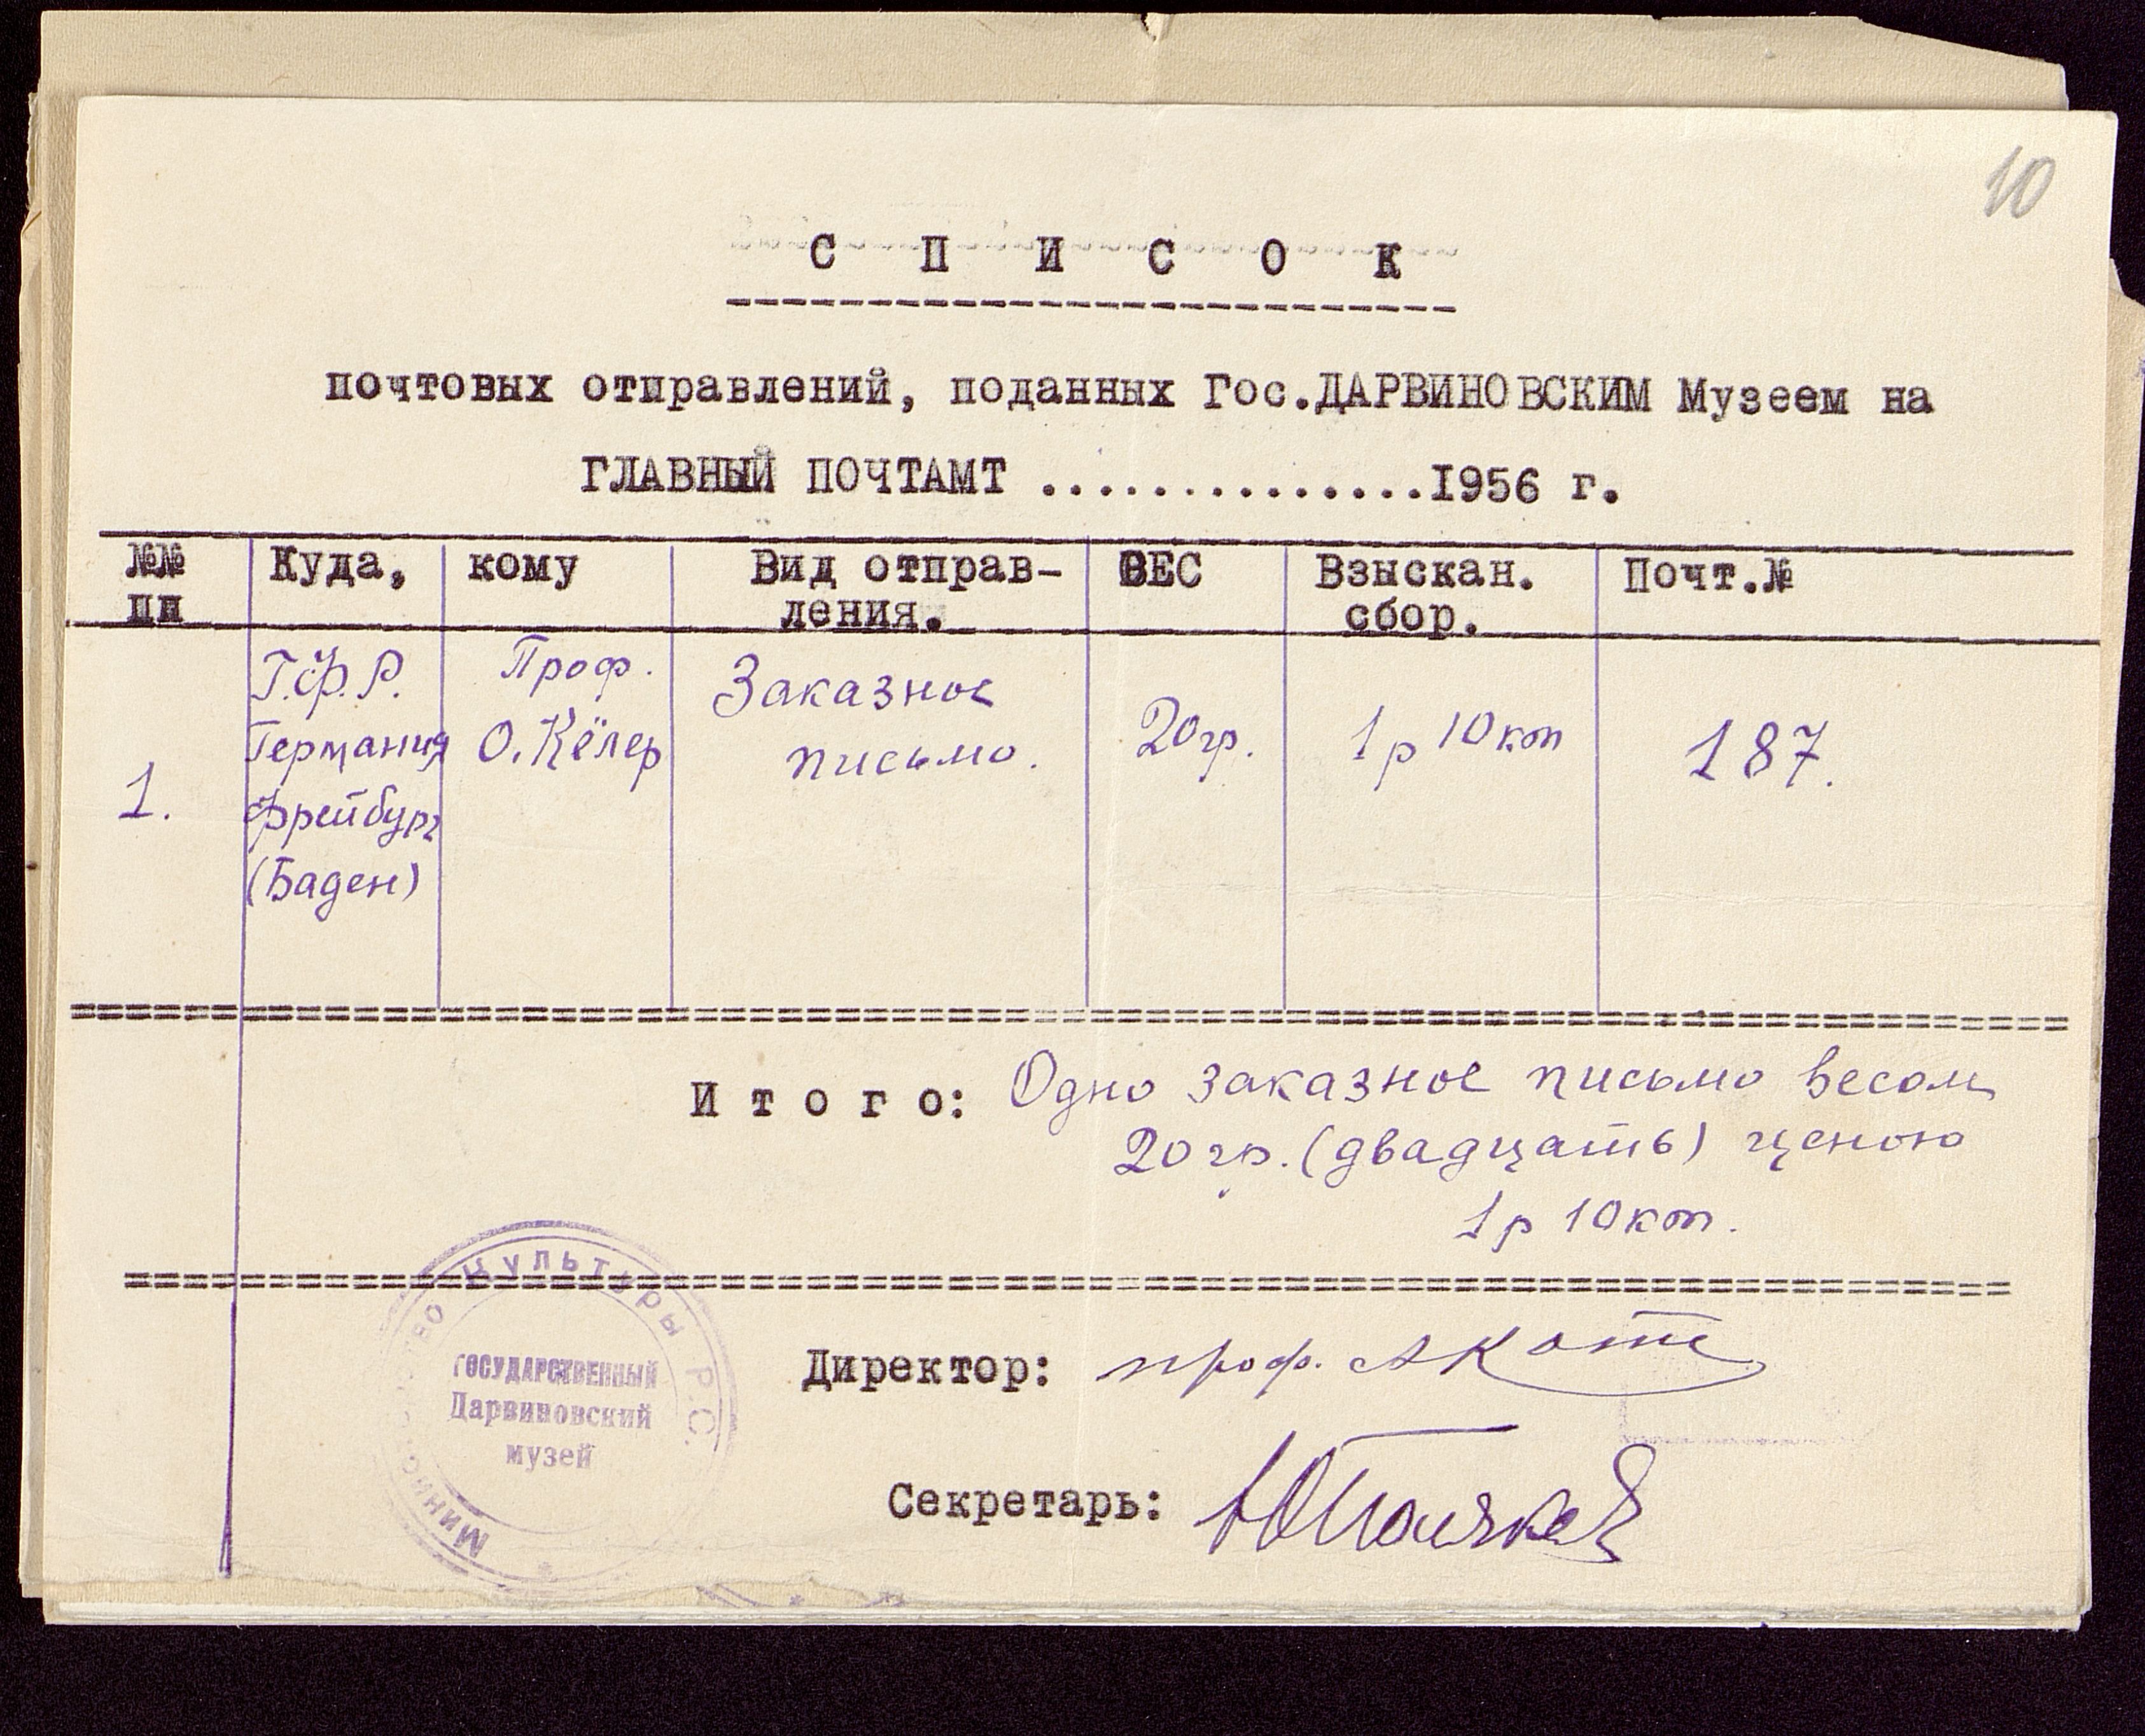 10
С П И С О К
почтовых отправлений, поданных Гос.ДАРВИНОВСКИМ Музеем на
ГЛАВНЫЙ ПОЧТАМТ ..............1956 г.
№№ пп Куда, кому Вид отправ-ления. ВЕС Взыскан. сбор. Почт.№
Г.Ф.Р. Проф. Заказное
Германия О. Кёлер письмо. 20гр. 1р 10коп 187.
1. Фрейбург
(Баден)
И т о г о: Одно заказное письмо весом
20гр. (двадцать) ценою
1р 10коп.
Министерство Культуры Р.С.
ГОСУДАРСТВЕННЫЙ
Дарвиновский
музей
Директор: проф. А Котс
Секретарь: